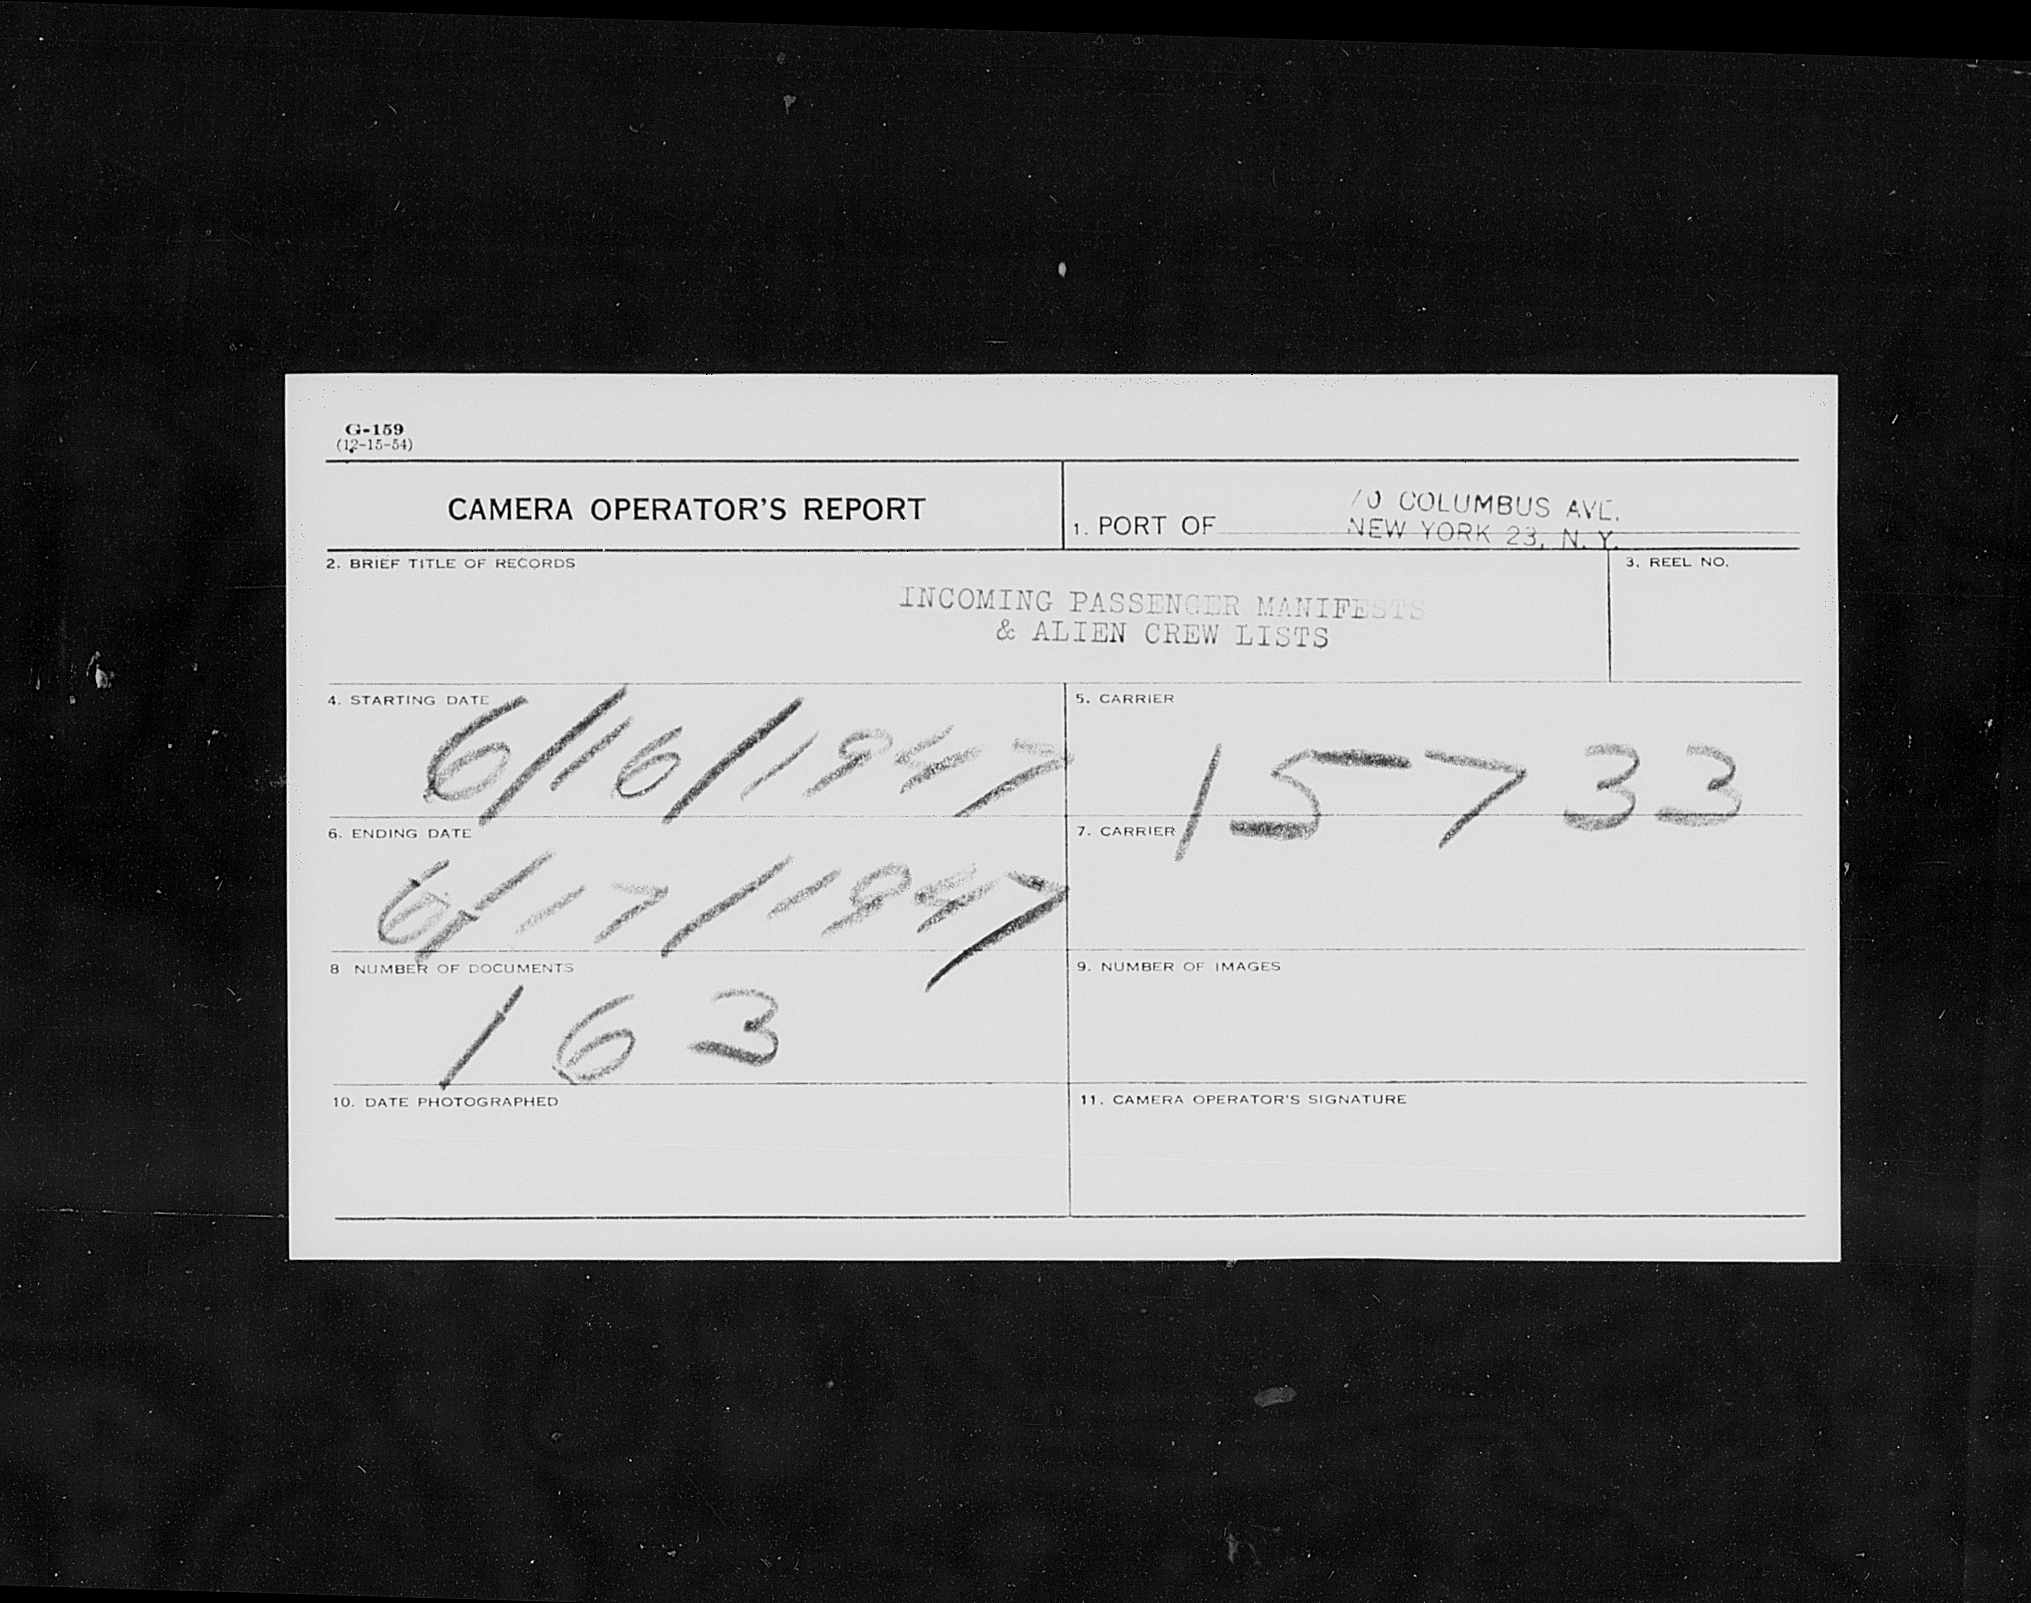 G-159
(12-15-54)
CAMERA OPERATOR'S REPORT
1. PORT OF
70 COLUMBUS AVE.
NEW YORK 23, N. Y.
2. BRIEF TITLE OF RECORDS
INCOMING PASSENGER MANIFESTS
& ALIEN CREW LISTS
3. REEL NO.
4. STARTING DATE
6/16/1947
5. CARRIER
15733
6. ENDING DATE
6/17/1947
7. CARRIER
8 NUMBER OF DOCUMENTS
163
9. NUMBER OF IMAGES
10. DATE PHOTOGRAPHED
11. CAMERA OPERATOR'S SIGNATURE